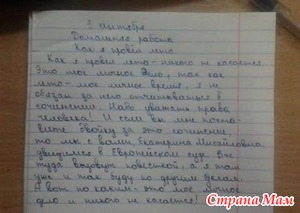 1 сентября
Домашняя работа
Как я провёл лето
Как я провёл лето - никого не касается.
Это моё личное дело, так как
лето - моё личное время, я не
обязан за него отчитываться в
сочинении. Надо уважать права
человека! И если вы мне поста-
вите двойку за это сочинение
то мы с вами, Екатерина Михайловна,
увидимся в Европейском суде. Вас
туда вызовут повесткой, а я там
уже и так буду по другим делам.
А вот по каким - это моё личное
дело и никого не касается!
Страна Мам